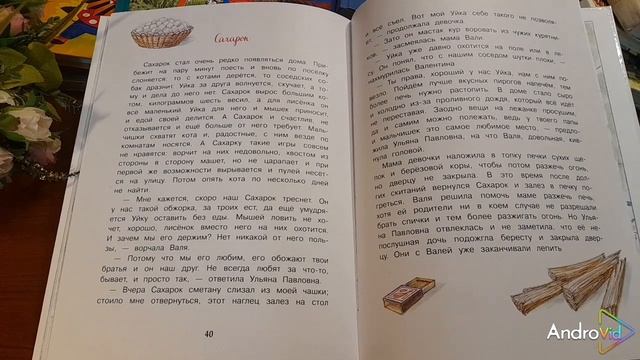 Сахарок
Сахарок стал очень редко появляться дома. При-
бежит на пару минут поесть и вновь по посёлку
слоняется: то с котами дерётся, то соседских со-
бак дразнит. Уйка за друга волнуется, скучает, а то-
му и дела до него нет. Сахарок вырос большим ко-
том, килограммов шесть весил, а для лисёнка он
всё маленький. Уйка для него и мышек приносил,
и едой своей делится. А Сахарок и счастлив, не
отказывается и ещё больше от него требует. Маль-
чишки схватят кота и, радостные, с ним везде по
комнатам носятся. А Сахарку такие игры совсем
не нравятся: ворчит на них недовольно, хвостом из
стороны в сторону машет, но не царапает и при
первой же возможности вырывается и пулей несёт-
ся на улицу. Потом опять кота по несколько дней
не найти.
— Мне кажется, скоро наш Сахарок треснет. Он
у нас такой обжорка, за троих ест, да ещё умудря-
ется Уйку оставить без еды. Мышей ловить не хо-
чет, хорошо, лисёнок вместо него на них охотится.
И зачем мы его держим? Нет никакой от него поль-
зы, — ворчала Валя.
— Потому что мы его любим, его обожают твои
братья и он наш друг. Не всегда любят за что-то,
бывает, и просто так, — ответила Ульяна Павловна.
— Вчера Сахарок сметану слизал из моей чашки;
стоило мне отвернуться, этот наглец залез на стол
40
и всё съел. Вот мой Уйка себе такого не позволя-
— продолжала девочка.
— Зато он мастак кур воровать из чужих курятни-
— засмеялась мама Вали.
— Уйка уже давно охотится на поле или в ле-
су. Он понял, что с нашим соседом шутки плохи, —
нахмурилась Валентина
вы права, хороший у нас Уйка, нам с ним по-
везло. Пойдём лучше вкусных пирогов напечём, тем
более печь нужно растопить. В доме стало сыро
и холодно из-за проливного дождя, который всё идёт
не переставая. Заодно вещи на лежанке просушим,
да и самим можно полежать, ведь у твоего папы
и мальчишек это самое любимое место, — предло-
жила Ульяна Павловна, на что Валя, довольная, кив-
нула головой.
Мама девочки наложила в топку печки сухих ще-
пок и берёзовой коры, чтобы потом разжечь огонь,
но дверку не закрыла. В это время после дол-
гих скитаний вернулся Сахарок и залез в печку по-
греться. Валя решила помочь маме разжечь печь,
хотя ей родители ни в коем случае не разрешали
брать спички и тем более разжигать огонь. Но Улья-
на Павловна отвлеклась и не заметила, что её не-
послушная дочь подожгла бересту и закрыла двер-
цу. Они с Валей уже заканчивали лепить
AndroVid